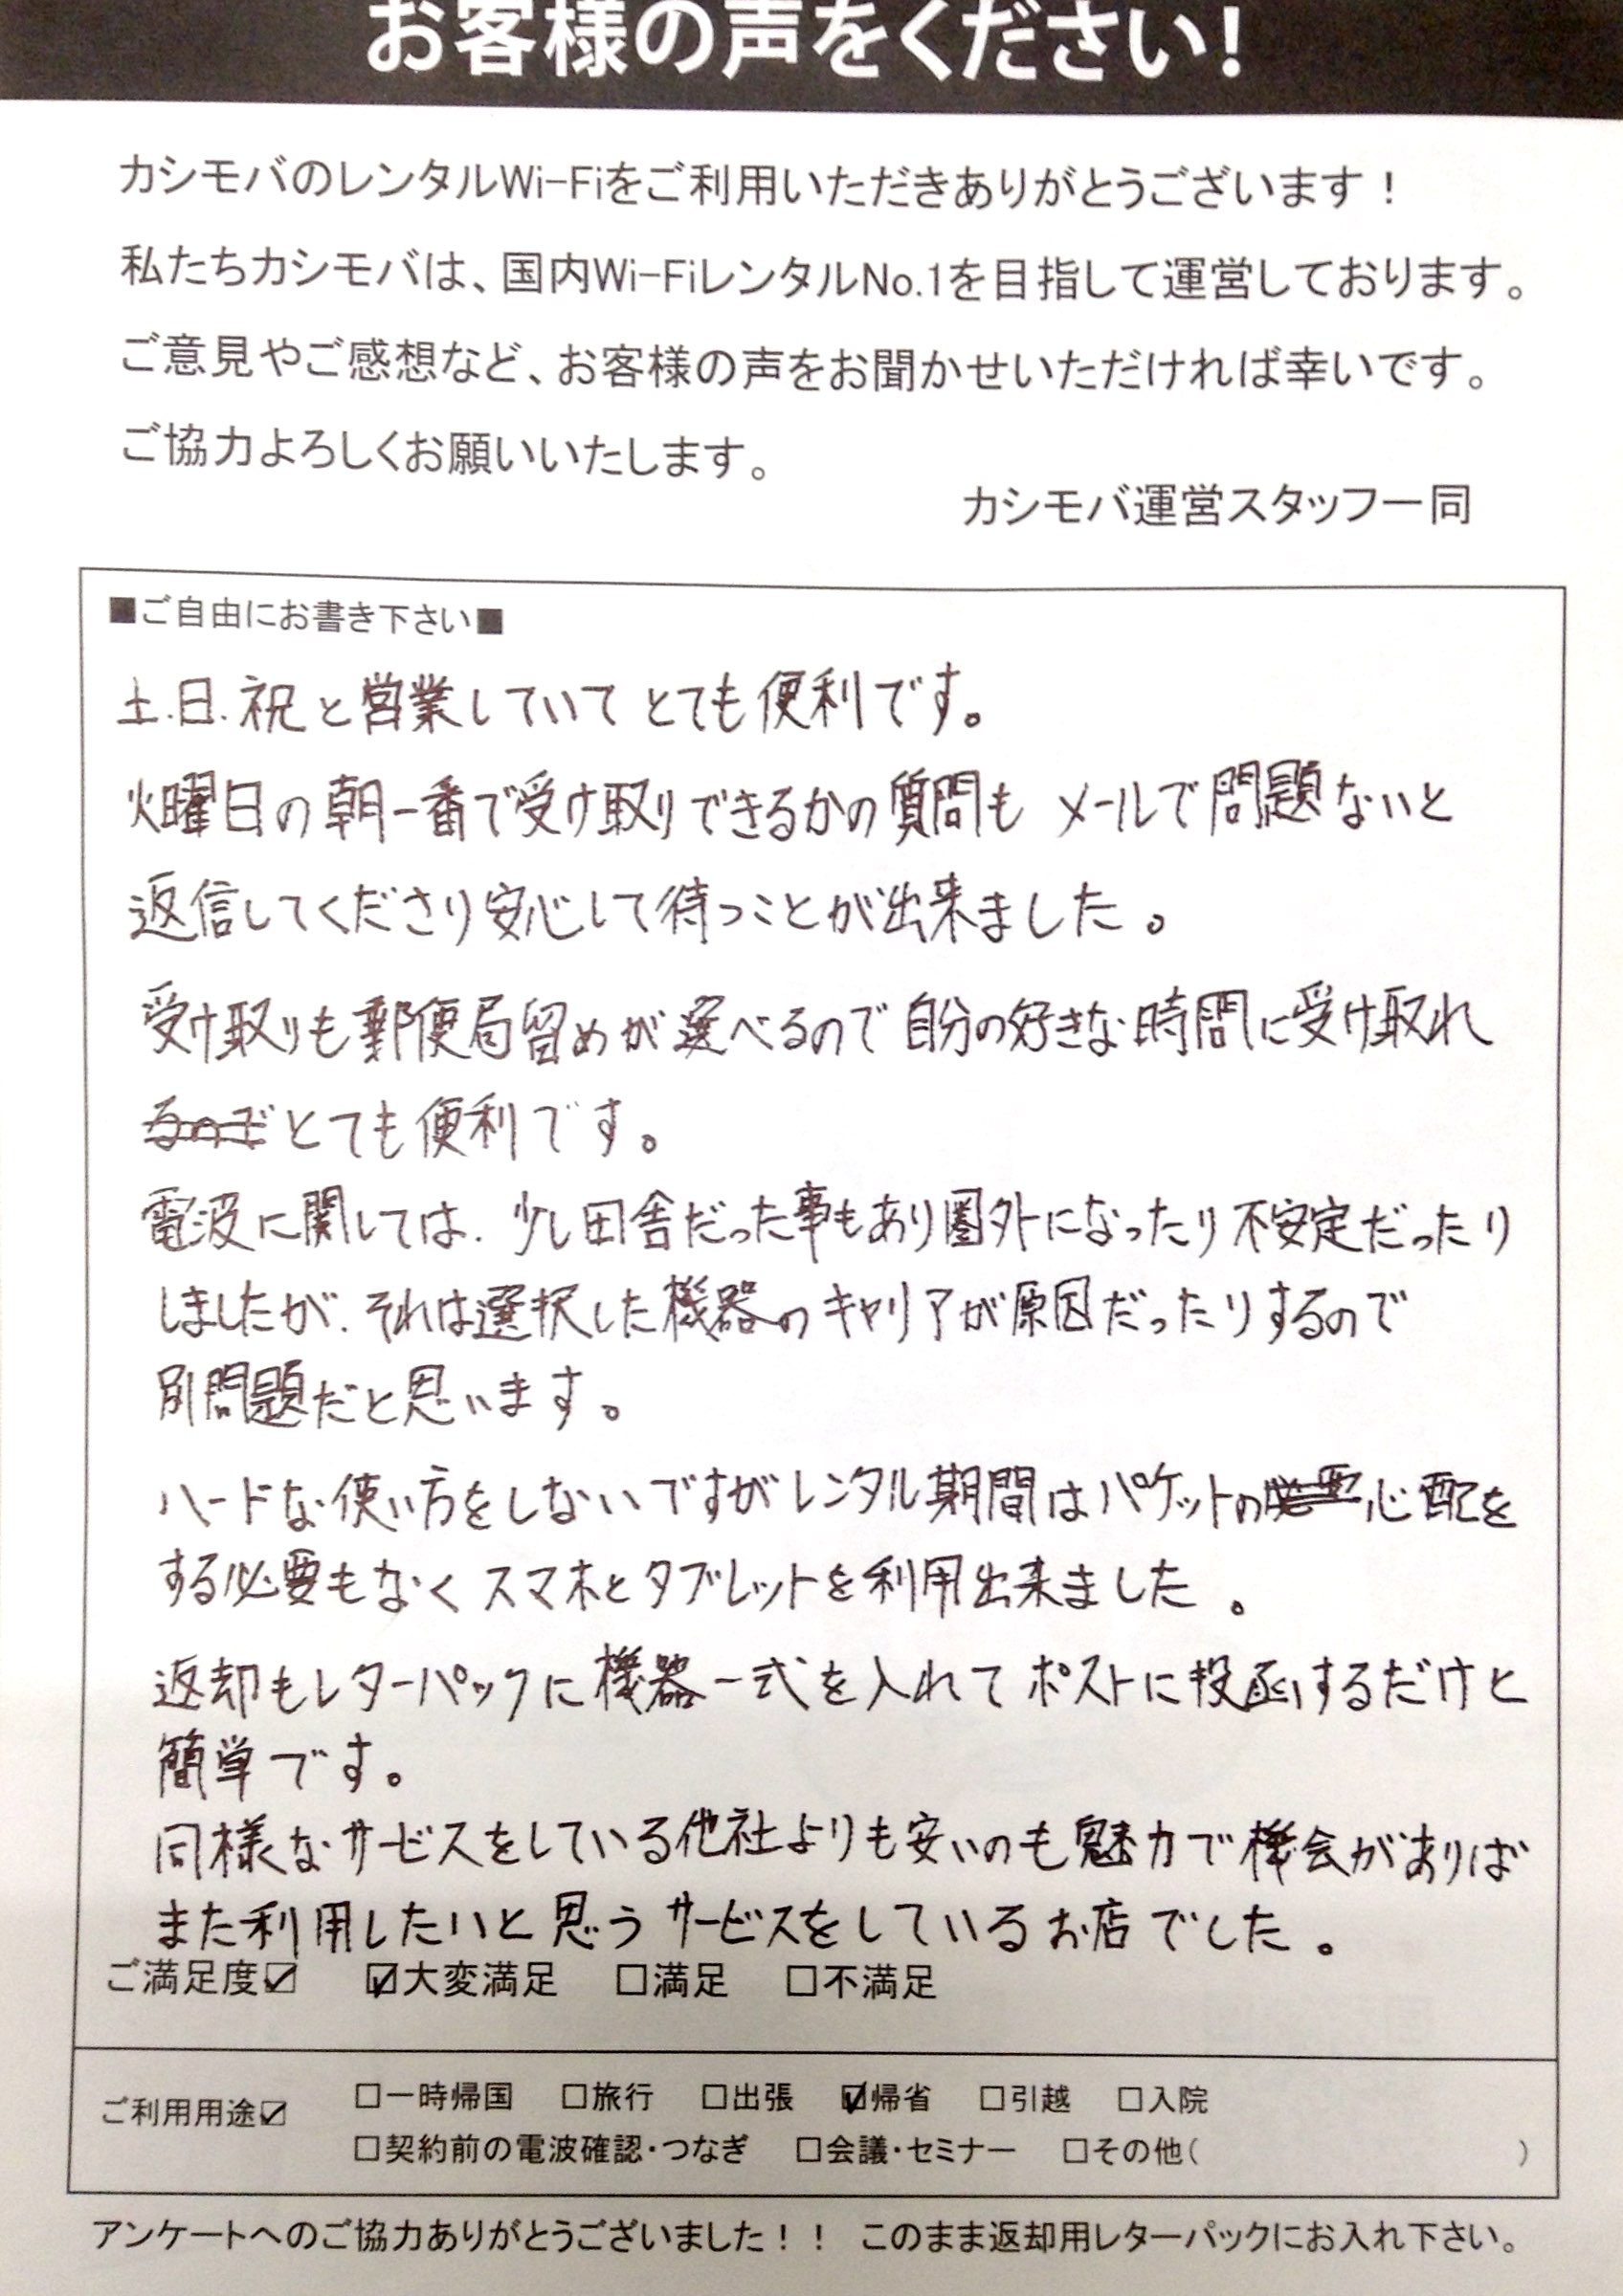 お客様の声をください!
カシモバのレンタルWi-Fiをご利用いただきありがとうございます!
私たちカシモバは、国内Wi-FiレンタルNo.1を目指して運営しております。
ご意見やご感想など、お客様の声をお聞かせいただければ幸いです。
ご協力よろしくお願いいたします。
カシモバ運営スタッフ一同
■ご自由にお書き下さい■
土.日.祝と営業していてとても便利です。
火曜日の朝一番で受け取りできるかの質問も メールで問題ないと
返信してくださり安心して待つことが出来ました。
受け取りも郵便局留めが選べるので自分の好きな時間に受け取れ
るのでとても便利です。
電波に関しては、少し田舎だった事もあり圏外になったり不安定だったり
しましたが、それは選択した機器のキャリアが原因だったりするので
別問題だと思います。
ハードな使い方をしないですがレンタル期間はパケットの心配を
する必要もなくスマホとタブレットを利用出来ました。
返却もレターパックに機器一式を入れてポストに投函するだけと
簡単です。
同様なサービスをしている他社よりも安いのも魅力で機会がありば
また利用したいと思うサービスをしているお店でした。
ご満足度☑ ☑大変満足 □満足 □不満足
ご利用用途☑ □一時帰国 □旅行 □出張 ☑帰省 □引越 □入院
□契約前の電波確認・つなぎ □会議・セミナー □その他( )
アンケートへのご協力ありがとうございました!! このまま返却用レターパックにお入れ下さい。